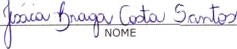 Jéssica Braga Costa Santos
NOME